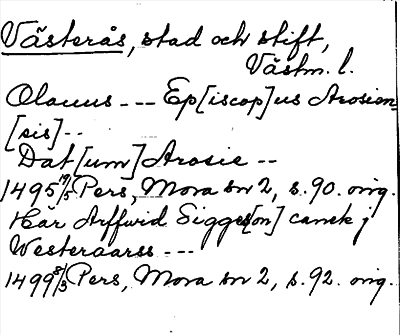 Västerås, stad och stift,
Västm. l.
Olauus --- Ep[iscop]us Arosien=
[sis]--
Dat[um] Arosie --
1495 19/5 Pers, Mora sn 2, s.90. orig.
Här Arffwid Sigges[on] canik j
Westeraarss ---
1499 8/3 Pers, Mora sn 2, s.92. orig.